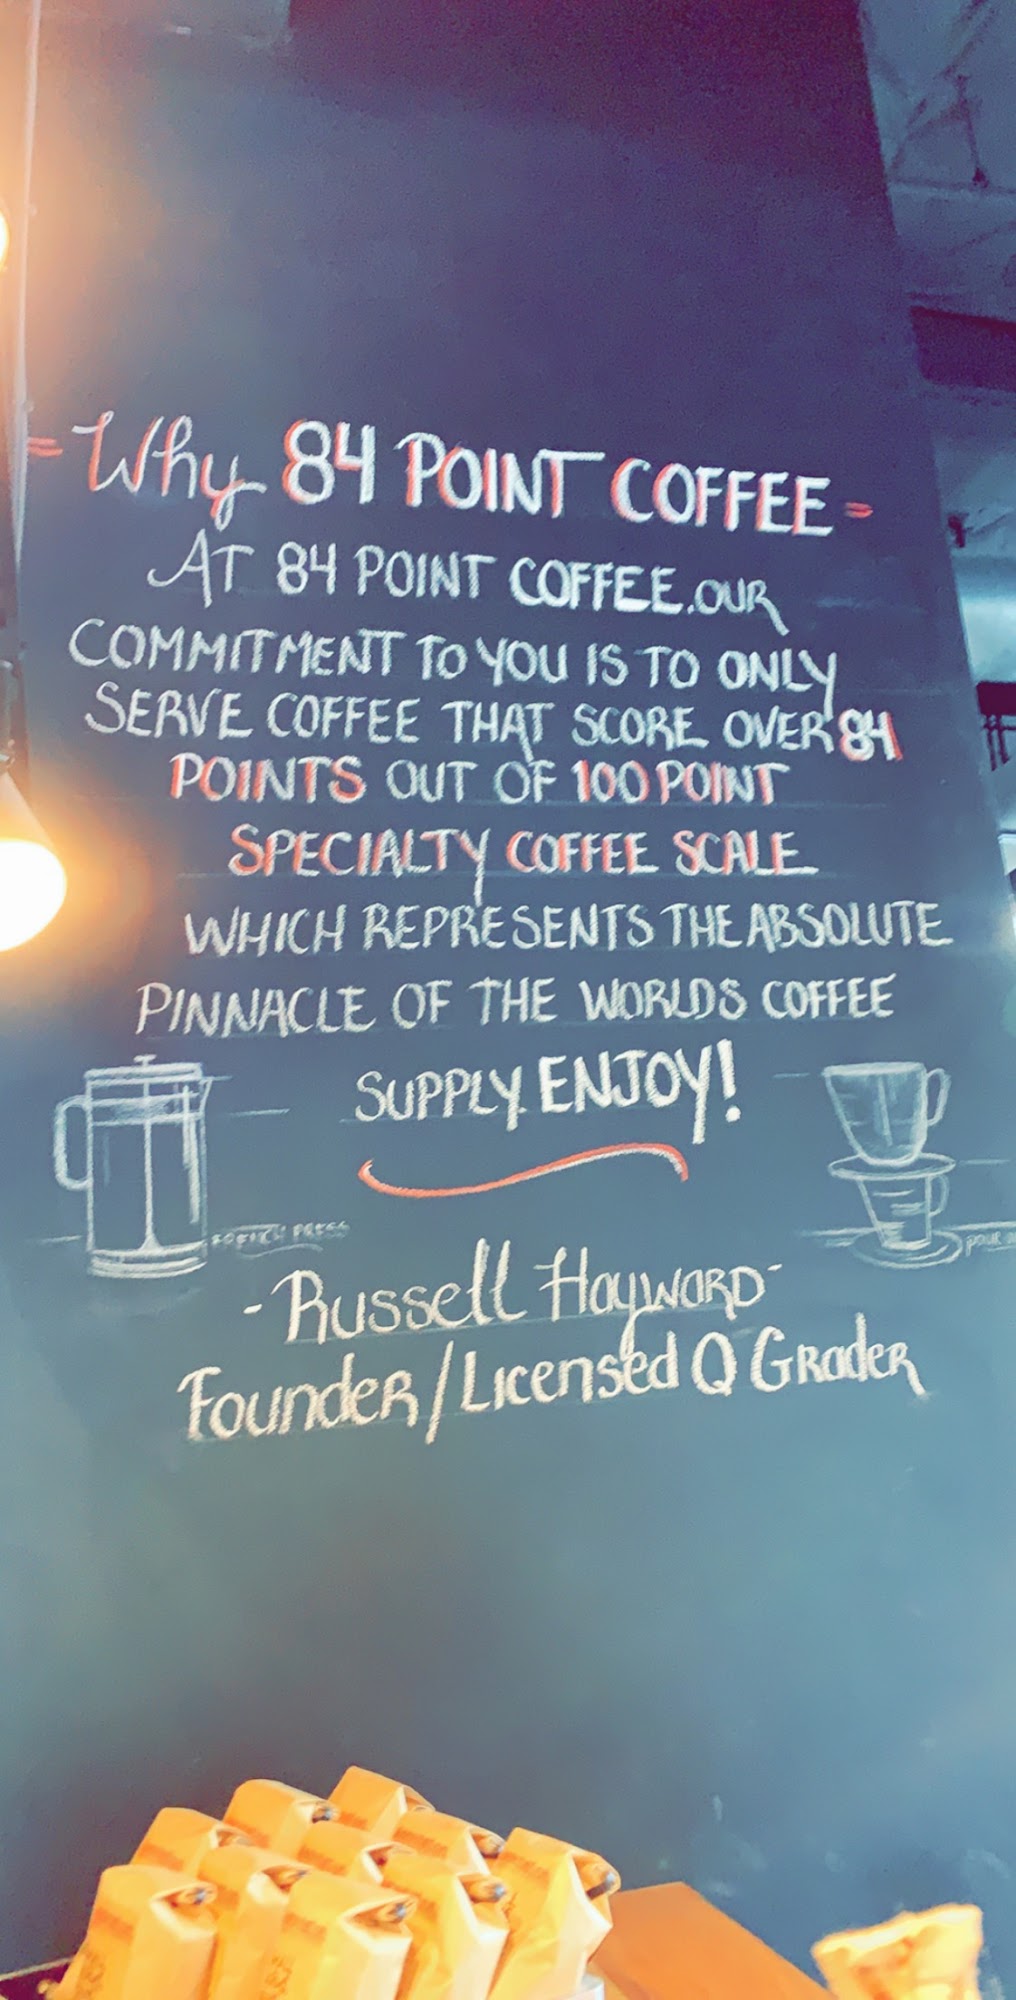 - Why 84 POINT COFFEE -
AT 84 POINT COFFEE. OUR
COMMITMENT TO YOU IS TO ONLY
SERVE COFFEE THAT SCORE OVER 84
POINTS OUT OF 100 POINT
SPECIALTY COFFEE SCALE
WHICH REPRESENTS THE ABSOLUTE
PINNACLE OF THE WORLDS COFFEE
SUPPLY. ENJOY!
FRENCH PRESS
POUR
- Russell Hayward -
Founder/Licensed Q Grader